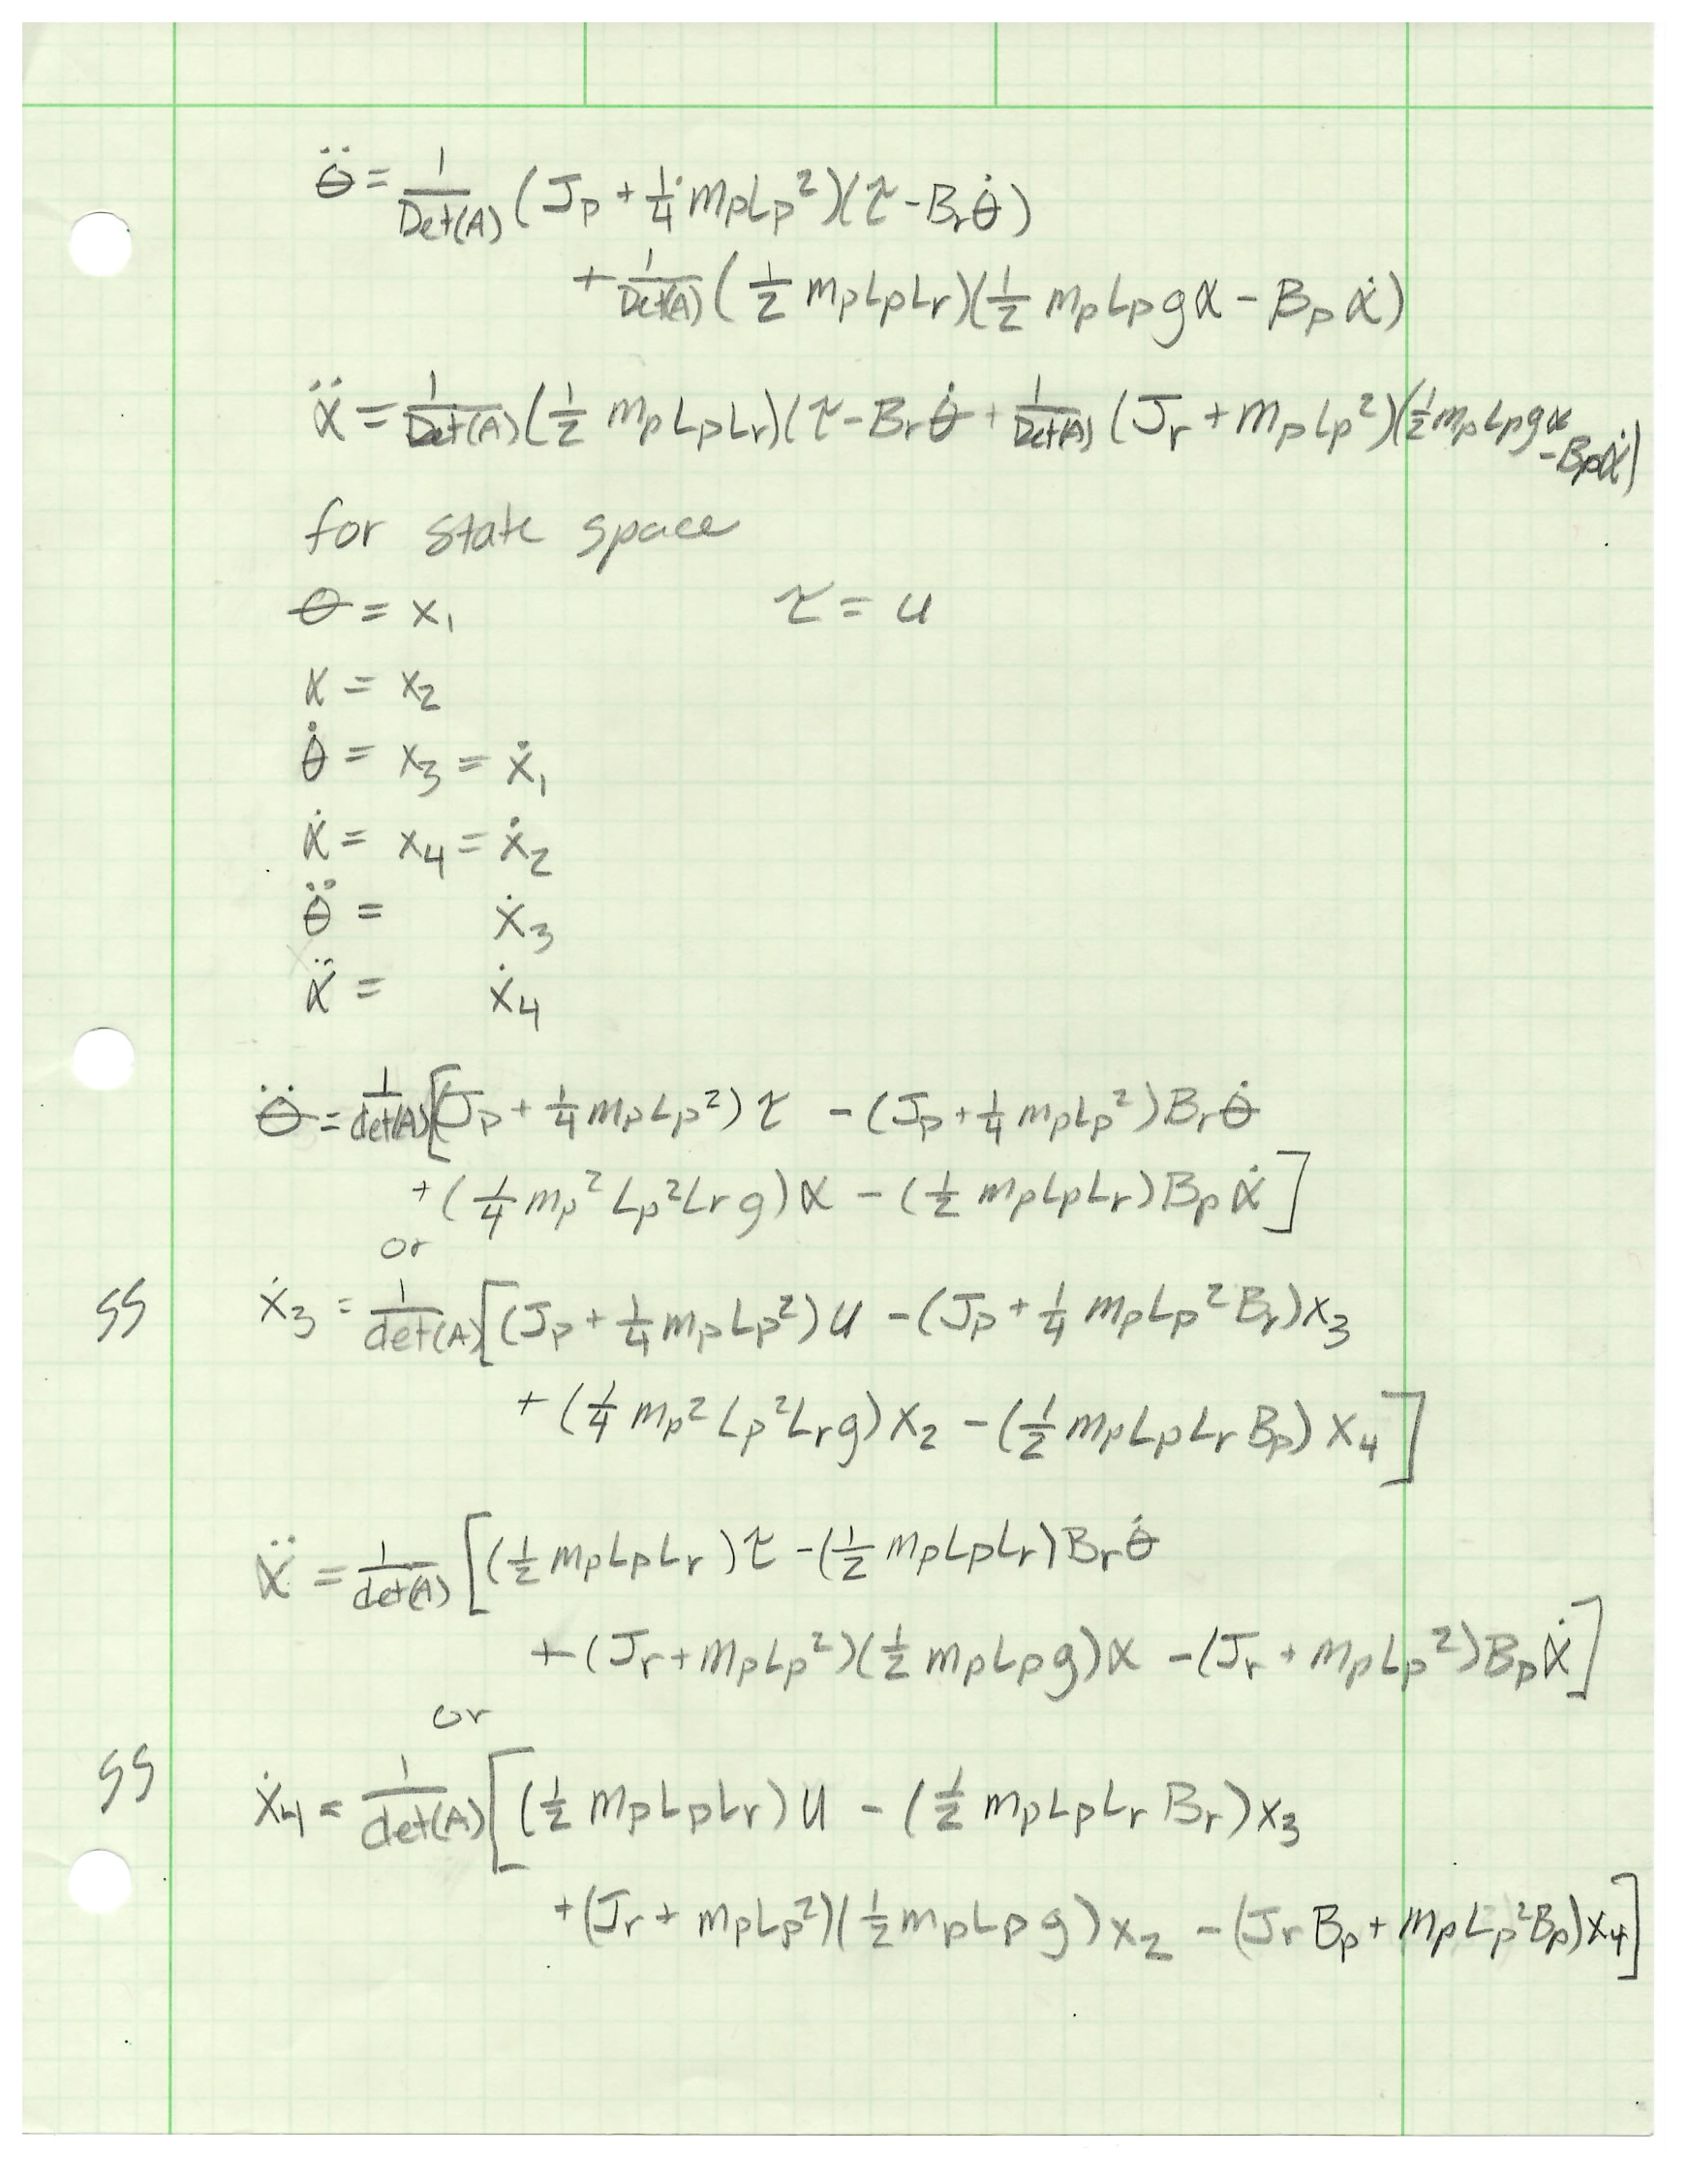 θ̈ = 1/Det(A) (Jp + 1/4 mpLp²)(τ - Brθ̇)
+ 1/Det(A) (1/2 mpLpLr)(1/2 mpLpgα - Bpα̇)
α̈ = 1/Det(A) (1/2 mpLpLr)(τ - Brθ̇ + 1/Det(A) (Jr + mpLp²)(1/2 mpLpgα - Bpα̇)
for state space
θ = x₁ τ = u
α = x₂
θ̇ = x₃ = ẋ₁
α̇ = x₄ = ẋ₂
θ̈ = ẋ₃
α̈ = ẋ₄
θ̈ = 1/det(A) [(Jp + 1/4 mpLp²)τ - (Jp + 1/4 mpLp²)Brθ̇
+ (1/4 mp²Lp²Lrg)α - (1/2 mpLpLr)Bpα̇]
or
SS ẋ₃ = 1/det(A) [(Jp + 1/4 mpLp²)u - (Jp + 1/4 mpLp²Br)x₃
+ (1/4 mp²Lp²Lrg)x₂ - (1/2 mpLpLrBp)x₄]
α̈ = 1/det(A) [(1/2 mpLpLr)τ - (1/2 mpLpLr)Brθ̇
+ (Jr + mpLp²)(1/2 mpLpg)α - (Jr + mpLp²)Bpα̇]
or
SS ẋ₄ = 1/det(A) [(1/2 mpLpLr)u - (1/2 mpLpLrBr)x₃
+ (Jr + mpLp²)(1/2 mpLpg)x₂ - (JrBp + mpLp²Bp)x₄]